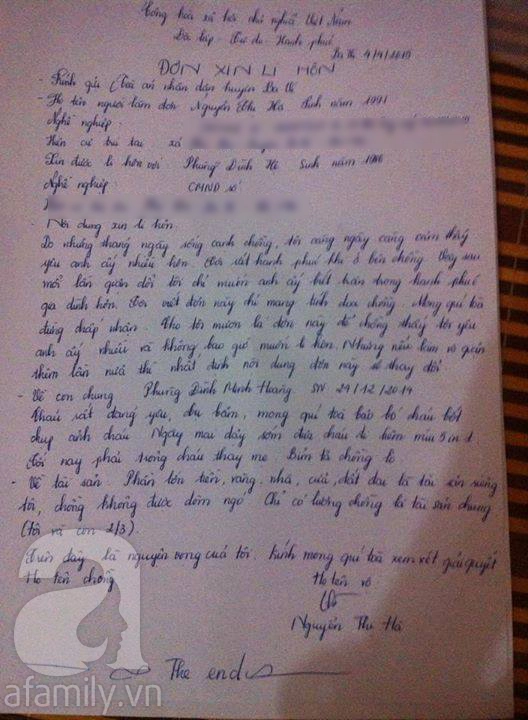 Cộng hòa xã hội chủ nghĩa Việt Nam
Độc lập - Tự do - Hạnh phúc
Ba Vì 4/4/2015
ĐƠN XIN LI HÔN
- Kính gửi Tòa án nhân dân huyện Ba Vì
- Họ tên người làm đơn Nguyễn Thu Hà Sinh năm 1991
Nghề nghiệp:
Hiện cư trú tại xã
Xin được li hôn với: Phùng Đình Hà Sinh năm 1986
Nghề nghiệp: CMND số
- Nội dung xin li hôn:
Do những tháng ngày sống cạnh chồng, tôi càng ngày càng cảm thấy
yêu anh ấy nhiều hơn. Tôi rất hạnh phúc khi ở bên chồng. Vậy sau
mỗi lần quan đổi tôi chỉ muốn anh ấy biết trân trọng hạnh phúc
gia đình hơn. Tôi viết đơn này chỉ mang tính dọa chồng. Mong quí tòa
đừng chấp nhận. Cho tôi mượn lá đơn này để chồng thấy tôi yêu
anh ấy nhiều và không bao giờ muốn li hôn. Nhưng nếu làm vợ giận
thêm lần nữa thì nhất định nội dung đơn này sẽ thay đổi
- Về con chung Phùng Đình Minh Hoàng SN 29/12/2014
Cháu rất đáng yêu, bụ bẫm, mong quí tòa bảo bố cháu bớt
chụp ảnh cháu. Ngày mai dậy sớm đưa cháu đi tiêm mũi 5 in 1
Tối nay phải trông cháu thay mẹ. Bỉm tã chồng lo
- Về tài sản: Phần lớn tiền, vàng, nhà, cửa, đất đai là tài sản riêng
tôi, chồng không được dòm ngó. Chỉ có lương chồng là tài sản chung
(tôi và con 2/3)
Trên đây là nguyện vọng của tôi. Kính mong quí tòa xem xét giải quyết
Họ tên chồng Họ tên vợ
Hà
Nguyễn Thu Hà
The end
afamily.vn